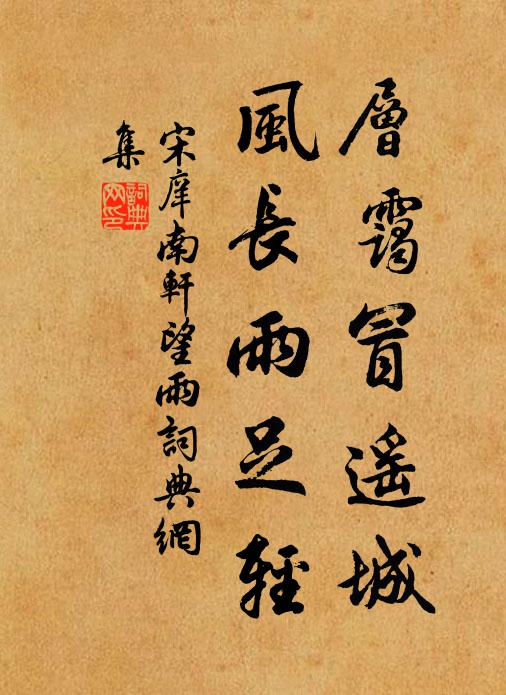 層靄冒遥城
風長雨足輕
宋庠南軒望雨詞典網
集
詞典網印